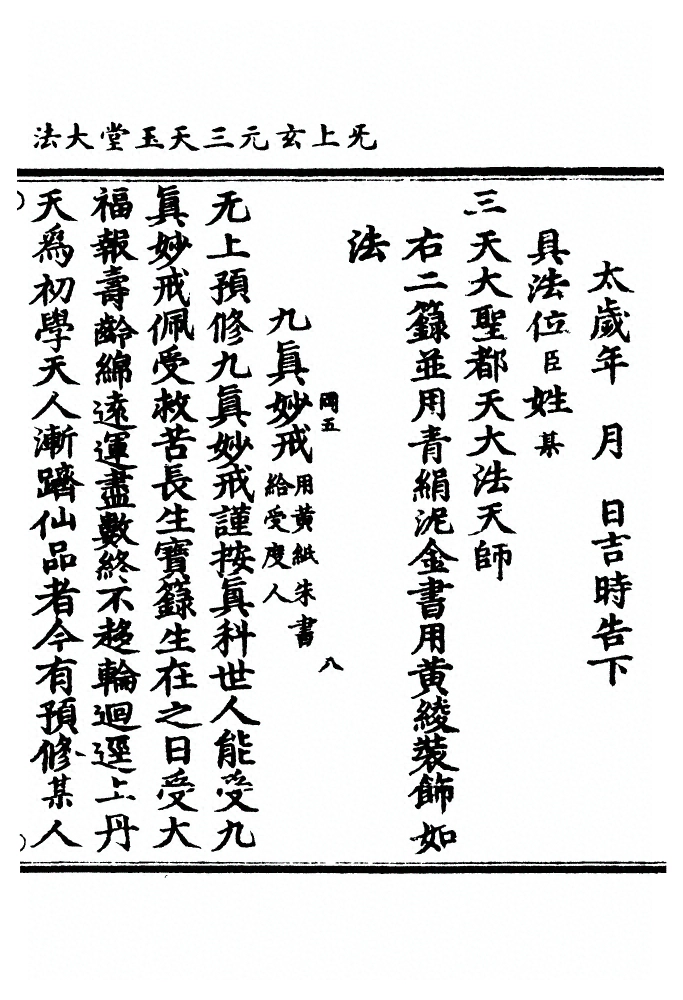 无上玄元三天玉堂大法
太歲年　月　日吉時告下
具法位臣姓某
三天大聖都天大法天師
右二籙並用青絹泥金書用黃綾裝飾如
法
岡五　八
九眞妙戒用黃紙朱書給受度人
无上預修九眞妙戒謹按眞科世人能受九
眞妙戒佩受救苦長生寶籙生在之日受大
福報壽齡綿遠運盡數終不趍輪迴逕上丹
天爲初學天人漸躋仙品者今有預修某人